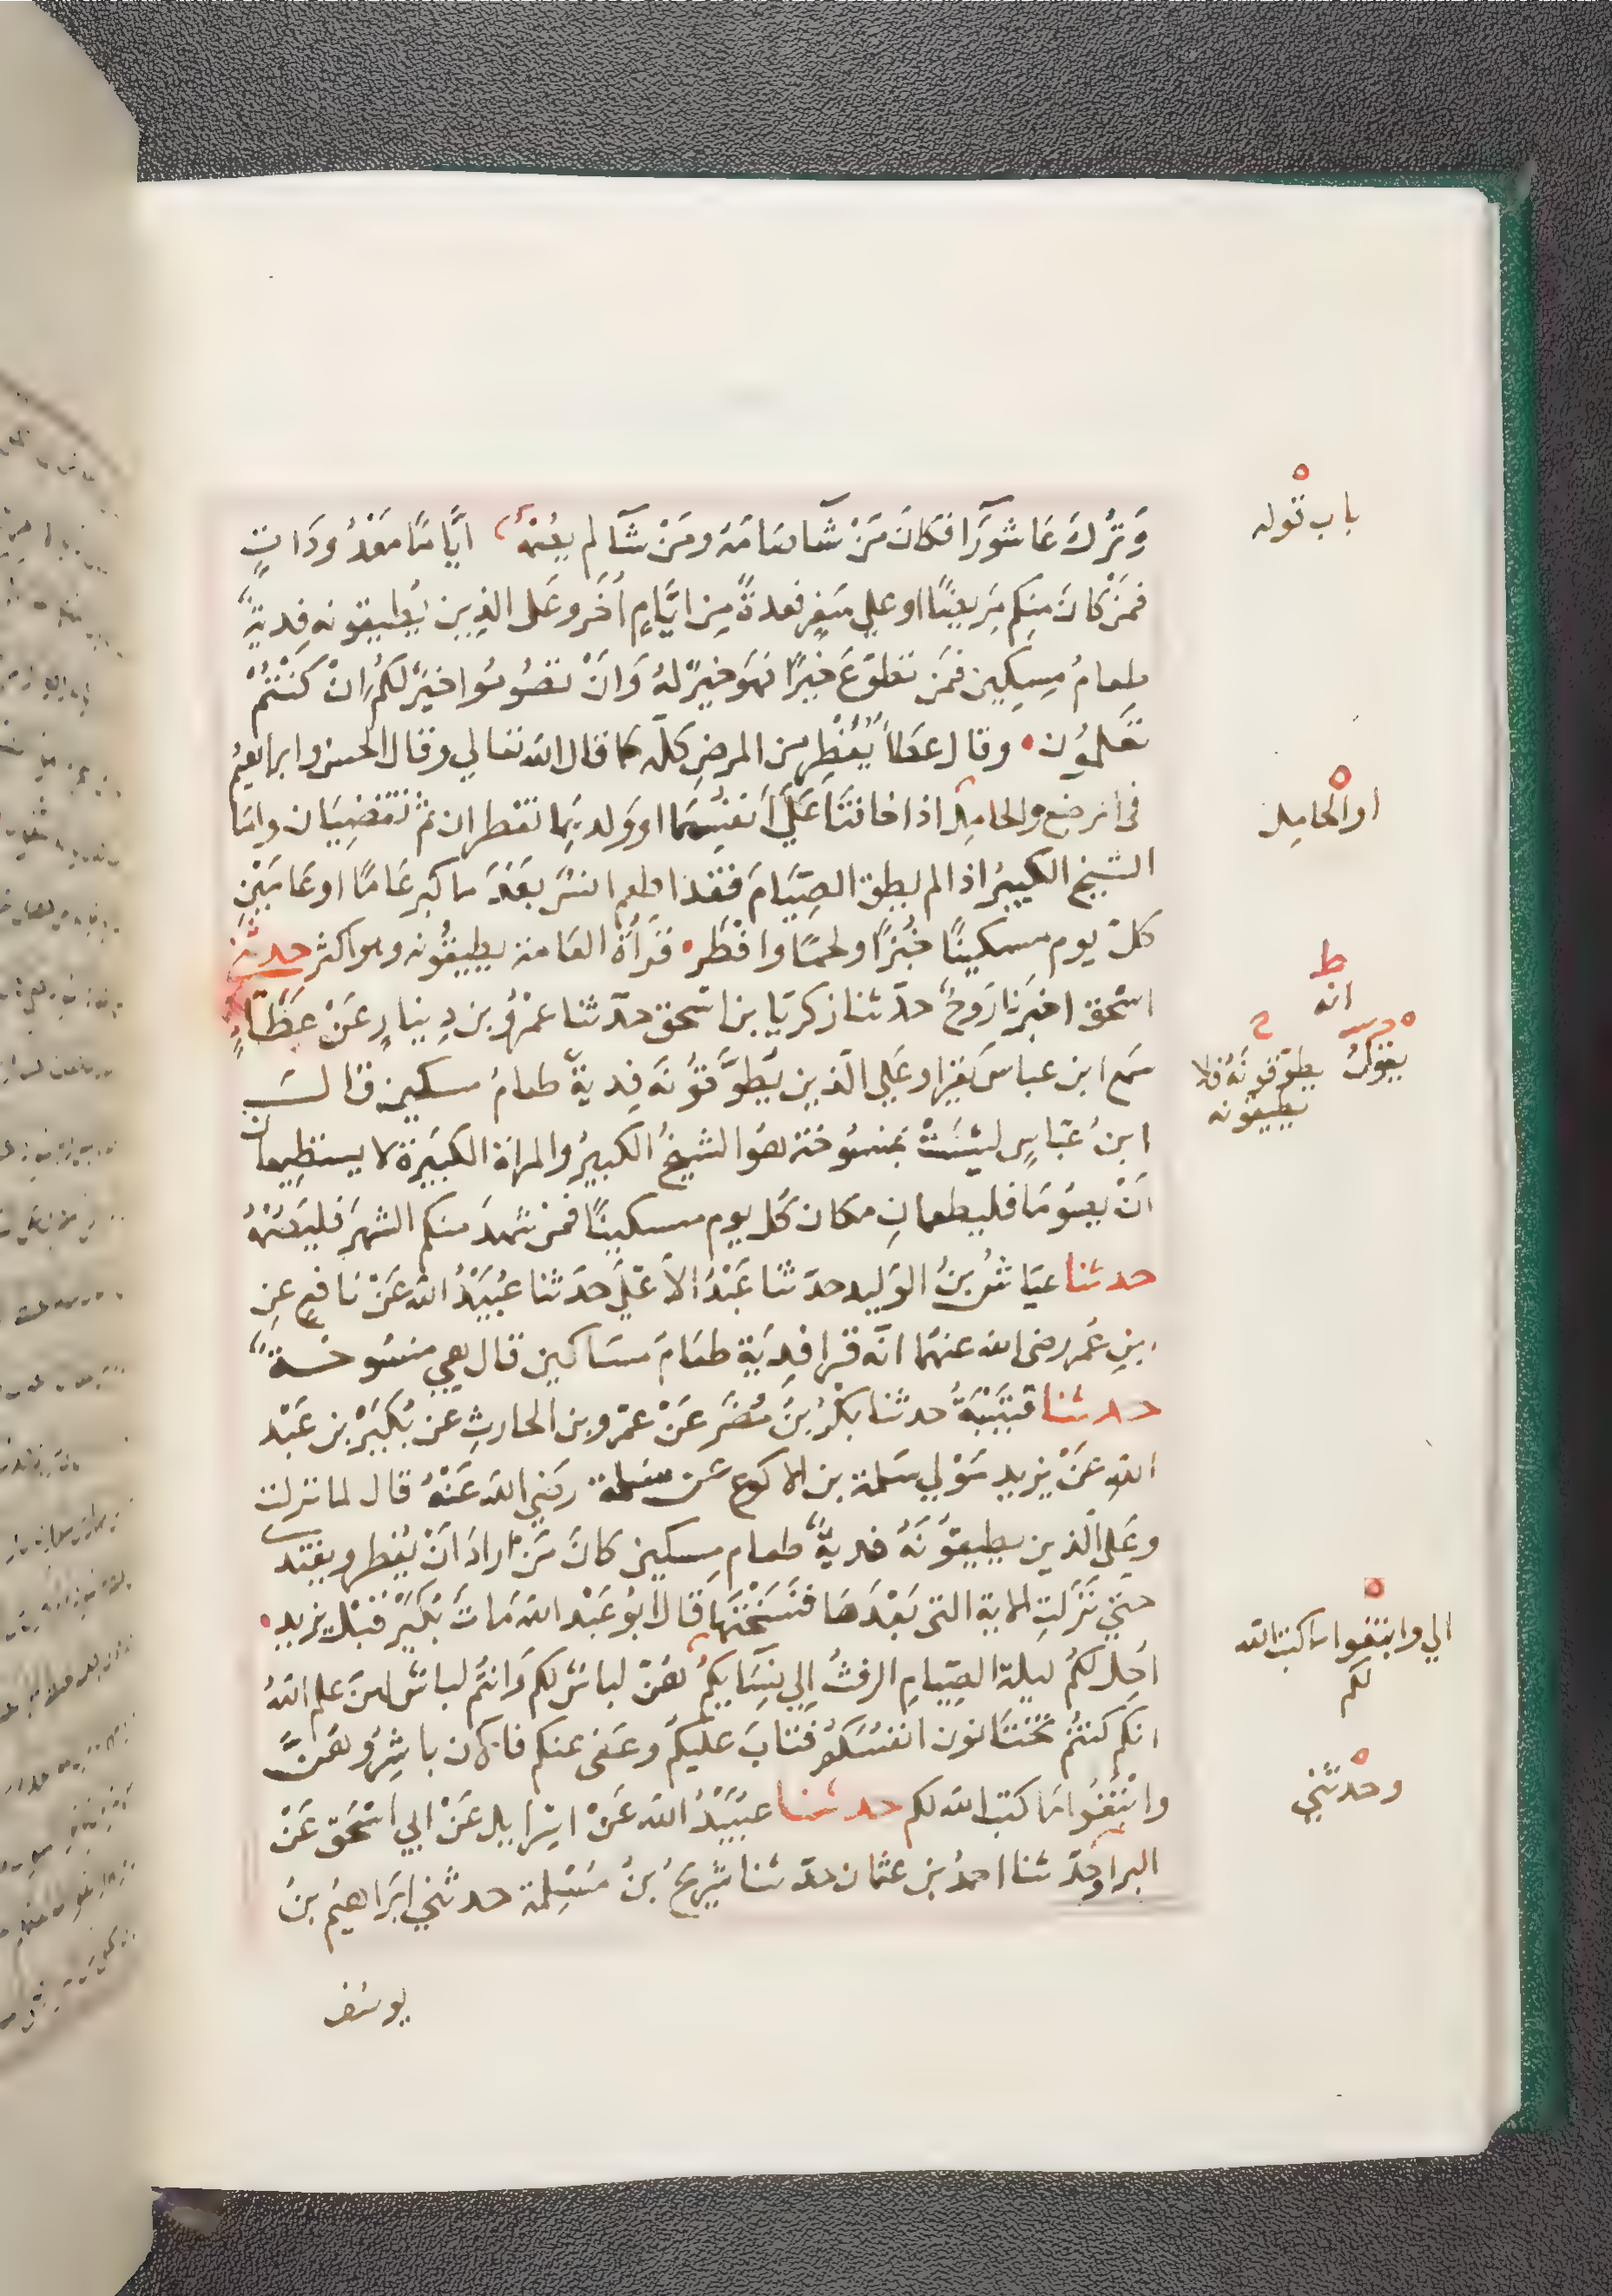 وَتُرِكَ عَاشُورَآ فكانَ مَنْ شَآ صَامَهُ ومَنْ شَآ لم يصُمْهُ ايَّامًا مَعْدُودَاتٍ
فمَنْ كانَ منِكم مَرِيضًا او علي سَفرٍ فعدةٌ مِن ايَّامٍ أخَر وعَلى الذِين يُطيقونه فِديةٌ
طعامُ مِسكِين فمَن تطوّعَ خيرًا فهَو خيرٌ لهُ وَانْ تصُومُوا خيرٌ لكُم انْ كنْتُمْ
تعَلموُن وقال عَطاٌ يُفْطِر من المرضِ كلّه كما قال الله تعالي وقال الحسن وابراهيمُ
فى المرضع والحامِل اذا خافتَا عَلَى أنفسِهمَا او وَلدِهِمَا تفطران ثم تقضِيَان وامَّا
الشيخ الكبِيرُ اذا لم يطِق الصِّيَامَ فقد اطعم انسٌ بعَدَ ما كبر عَامًا او عَامَيْنِ
كلّ يوم مسكينًا خُبزًا ولحمًا وافْطَر قرَأةُ العَامة يطيقُونه وهو اكثر حدثنى
اسْحق اخبرَنَا رَوحٌ حدّثنا زكريّا بن اسْحق حدّثنا عَمْرُو بن دِينارٍ عَنْ عَطَآٍ
سَمع ابن عباسَ يَقرا وعَلي الّذِين يُطَوَّقوُنَهُ فِديةٌ طعامُ مسكين قالَ
ابنُ عبّاسٍ ليْسَتْ بمنسُوخة هوَ الشيخُ الكبيرُ والمراة الكبَيرَة لا يستطِيعان
انْ يصوُمَا فليطعمانِ مكان كُل يومٍ مسكينًا فمَن شهدَ منكم الشهرَ فليَصُمْهُ
حدثنا عيَاشُ بنُ الوَليد حدّثنا عَبْدُ الاَعْلَى حدَثنا عُبَيْدُ الله عَنْ نَافعٍ عنِ
ابنِ عُمَر رضى الله عنهمَا انّه قرا فِديَة طعَامَ مسَاكين قال هِي منسُوخة
حدثنا قتيْبَةُ حدثنا بكْرُ بنُ مُضَر عَنْ عَمْرو بن الحارثِ عن بُكَيْرِ بن عَبْد
اللهِ عَنْ يزيد مَوْلي سَلمة بن الاكوع عَن سَلمة رَضِي الله عَنْهُ قال لما نزلت
وعَلَى الّذين يطيقوُنَهُ فديةٌ طعام مِسكين كانَ مَن ارادَ انْ يُفطر ويفتدى
حتي نَزَلتِ الاية التى بَعْدَهَا فنَسَخَتْهَا قال ابُو عَبْد الله مَاتَ بُكَيْرٌ قبْلَ يزيد
اُحِل لكُم ليلة الصِّيَامِ الرفثُ إلي نِسَايكُم هُنّ لباسٌ لكم وَانتُم لباسٌ لهنّ علم اللهُ
انكم كنتُم تختَانون انفسَكُم فتابَ عليكُم وعَفى عنكم فالان باشِرُوهُنَّ
وابْتَغُوا مَا كتب الله لكم حدثنا عُبَيْدُ الله عَنْ اسْرَايِيل عَنْ ابي اسْحَق عَنْ
البرا وَحدّثنا احمدُ بن عثمان حدّثنا شُرَيْحُ بنُ مَسْلمة حدثني ابرَاهيمُ بنُ
يوسُف
باب قوله
او الحامِل
ط
انه
يقولُ
يطَوّقونَهُ فلا
يطيقونه
الي وابتغوا ما كتب الله
لكم
وحدّثني